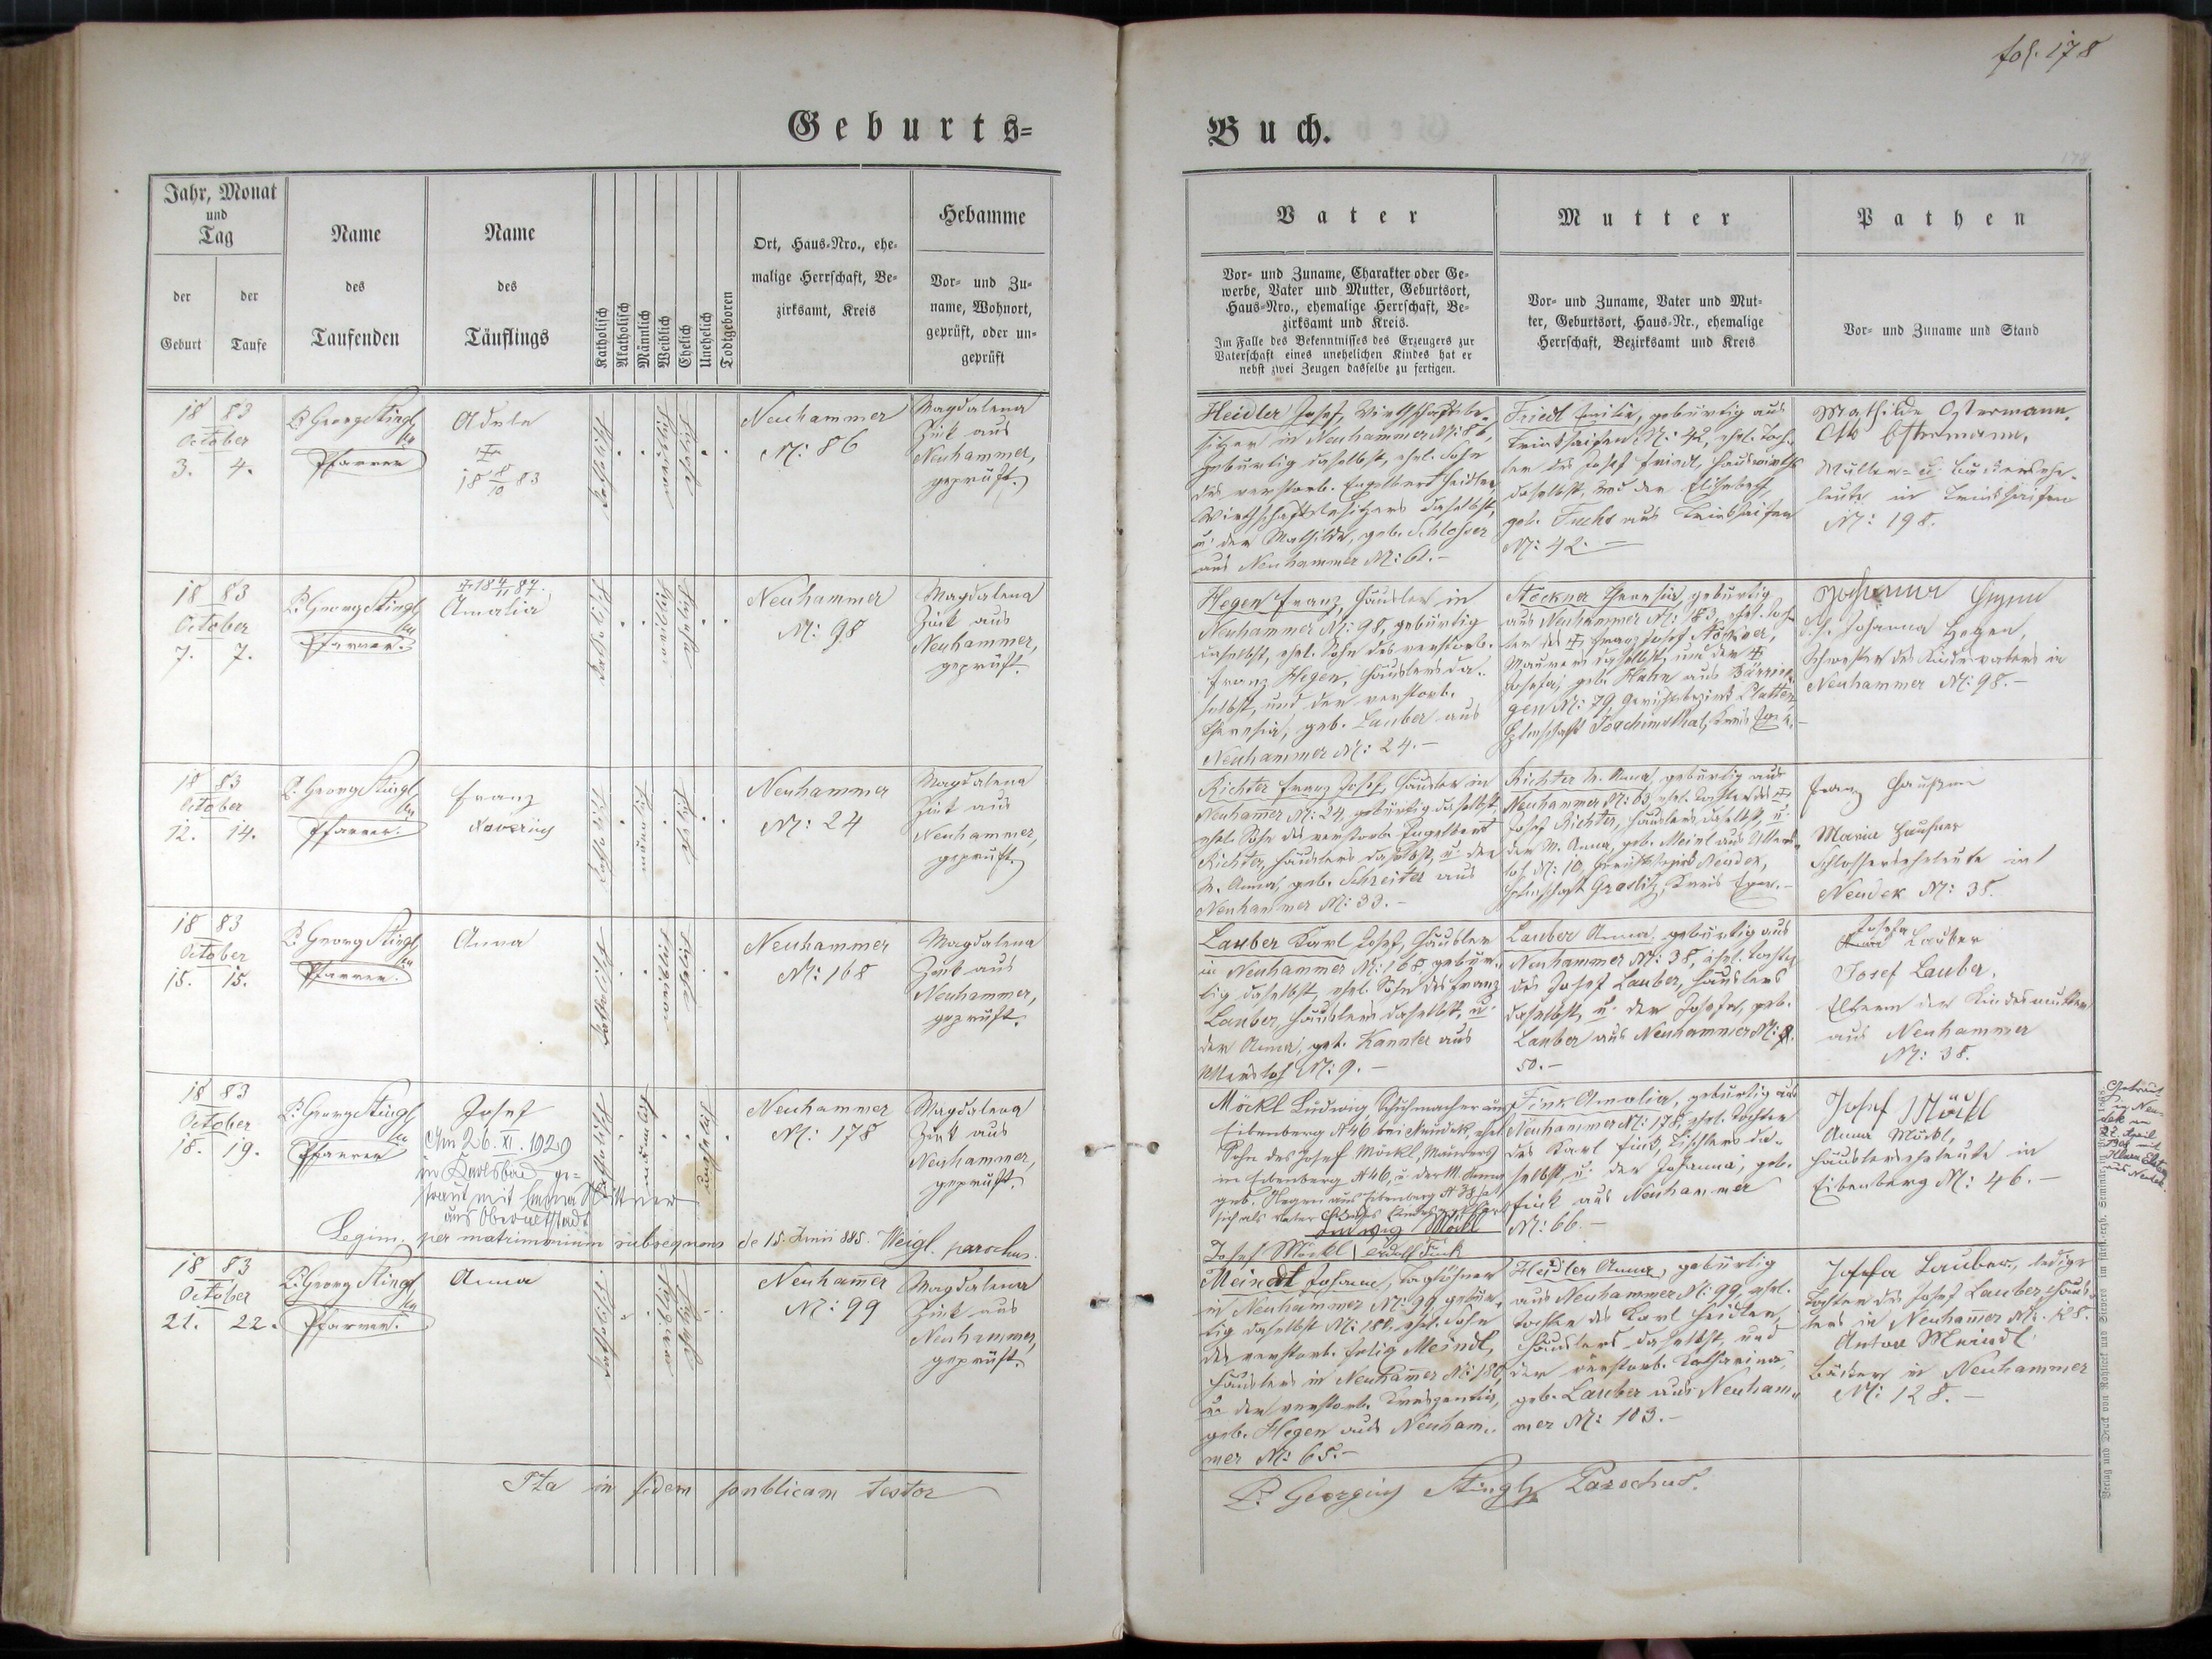 fol. 178
Geburts=
Buch.
178
Jahr, Monat
und
Tag
der
Geburt
der
Taufe
Name
des
Taufenden
Name
des
Täuflings
Katholisch
Akatholisch
Männlich
Weiblich
Ehelich
Unehelich
Todtgeboren
Ort, Haus-Nro., ehe-
malige Herrschaft, Be-
zirksamt, Kreis
Hebamme
Vor- und Zu-
name, Wohnort,
geprüft, oder un-
geprüft
Vater
Vor- und Zuname, Charakter oder Ge-
werbe, Vater und Mutter, Geburtsort,
Haus-Nro., ehemalige Herrschaft, Be-
zirksamt und Kreis.
Im Falle des Bekenntnisses des Erzeugers zur
Vaterschaft eines unehelichen Kindes hat er
nebst zwei Zeugen dasselbe zu fertigen.
Mutter
Vor- und Zuname, Vater und Mut-
ter, Geburtsort, Haus-Nr., ehemalige
Herrschaft, Bezirksamt und Kreis
Pathen
Vor- und Zuname und Stand
18 83
October
3. 4.
P. Georg Stingl
Pfarrer
Adele
✝
18 8/10 83
katholisch
weiblich
ehelich
Neuhammer
N: 86
Magdalena
Zink aus
Neuhammer,
geprüft.
Heidler Josef, Wirthschaftsbe-
sitzer in Neuhammer N: 86,
gebürtig daselbst, ehel. Sohn
des verstorb. Engelbert Heidler
Wirthschaftsbesitzers daselbst,
u. der Mathilde, geb. Schlosser
aus Neuhammer N: 61.-
Friedl Emilie, gebürtig aus
Trinkseifen N: 42, ehel. Toch-
ter des Josef Friedl, Hauswirths
daselbst, und der Elisabeth
geb. Fuchs aus Trinkseifen
N: 42.-
Mathilde Ostermann.
Otto Ostermann.
Müller- u. Bäckersehe-
leute in Trinkseifen
N: 198.
18 83
October
7. 7.
P. Georg Stingl
Pfarrer.
✝ 18 4/11 87.
Amalia
katholisch
weiblich
ehelich
Neuhammer
N: 98
Magdalena
Zink aus
Neuhammer,
geprüft.
Hegen Franz, Häusler in
Neuhammer N: 98, gebürtig
daselbst, ehel. Sohn des verstorb.
Franz Hegen, Häuslers da-
selbst, und der verstorb.
Theresia, geb. Lauber aus
Neuhammer N: 24.-
Stöckner Theresia, gebürtig
aus Neuhammer N: 183, ehel. Toch-
ter des ✝ Franz Josef Stöckner,
Maurers daselbst, und der ✝
Josefa, geb. Hahn aus Bärrin-
gen N: 79, Gerichtsbezirk Platten
Joachimsthal, Kreis Eger.-
Johanna Hegen
d.i. Johanna Hegen,
Schwester des Kindesvaters in
Neuhammer N: 98.-
18 83
October
12. 14.
P. Georg Stingl
Pfarrer.
Franz
Xaverius
katholisch
männlich
ehelich
Neuhammer
N: 24
Magdalena
Zink aus
Neuhammer,
geprüft.
Richter Franz Josef, Häusler in
Neuhamer N: 24, gebürtig daselbst,
ehel. Sohn des verstorb. Engelbert
Richter, Häuslers daselbst, u. der
M. Anna, geb. Schreiter aus
Neuhammer N: 33.-
Richter M. Anna, gebürtig aus
Neuhammer N: 63, ehel. Tochter des ✝
Josef Richter, Häuslers daselbst, u.
der M. Anna, geb. Meinl aus Ullers-
loh N: 10, Gerichtsbezirk Neudek,
Graslitz, Kreis Eger.-
Franz
Maria
Schlossereheleute in
Neudek N: 35.
18 83
October
15. 15.
P. Georg Stingl
Pfarrer.
Anna
katholisch
weiblich
ehelich
Neuhammer
N: 168
Magdalena
Zink aus
Neuhammer,
geprüft.
Lauber Karl Josef, Häusler
in Neuhammer N: 168, gebür-
tig daselbst, ehel. Sohn des Franz
Lauber, Häuslers daselbst, u.
der Anna, geb. Kannler aus
Ullersloh N: 9.-
Lauber Anna, gebürtig aus
Neuhammer N: 38, ehel. Tochter
des Josef Lauber, Häuslers
daselbst, u. der Josefa, geb.
Lauber aus Neuhammer N:
50.-
Josefa
Lauber
Josef Lauber.
Eltern der Kindesmutter
aus Neuhammer
N: 38.
18 83
October
18. 19.
P. Georg Stingl
Pfarrer
Josef
Am 26. XI. 1929
in Karlsbad ge-
traut mit Emma
aus
katholisch
männlich
unehelich
Neuhammer
N: 178
Magdalena
Zink aus
Neuhammer,
geprüft.
Legim. per matrimonium subsequens de 15. Junii 885. Weigl. parochus.
Möckl Ludwig, Schuhmacher aus
Eibenberg N 46 bei Neudek, ehel.
Sohn des Josef Möckl, Maurers
in Eibenberg N 46, u. der M. Anna
geb. Hegen aus Eibenberg N 38 hat
sich als Vater
Ludwig Möckl
Josef Möckl Adolf Fink
Fink Amalia, gebürtig aus
Neuhammer N: 178, ehel. Tochter
des Karl Fink, Tischlers da-
selbst, u. der Johanna, geb.
Fink aus Neuhammer
N: 66.-
Josef Möckl
Anna Möckl,
Häuslerseheleute in
Eibenberg N: 46.-
Getraut
in Neu-
dek am
22. April
mit
aus Neudek.
18 83
October
21. 22.
P. Georg Stingl
Pfarrer.
Anna
katholisch
weiblich
ehelich
Neuham̄er
N: 99
Magdalena
Zink aus
Neuhammer,
geprüft.
Meindl Johann, Taglöhner
in Neuhammer N: 99, gebür-
tig daselbst N: 180, ehel. Sohn
des verstorb. Felix Meindl,
Häuslers in Neuham̄er N: 180,
u. der verstorb. Kreszentia,
geb. Hegen aus Neuham-
mer N: 65.-
Heidler Anna, gebürtig
aus Neuhammer N: 99, ehel.
Tochter des Karl Heidler,
Häuslers daselbst, und
der verstorb. Katharina,
geb. Lauber aus Neuham-
mer N: 103.-
Josefa Lauber, ledige
Tochter des Josef Lauber, Häus-
lers in Neuham̄er N: 128.
Anton Meindl
Bäcker in Neuhammer
N: 128.-
Ita in fidem publicam testor
P. Georgius Stingl Parochus.